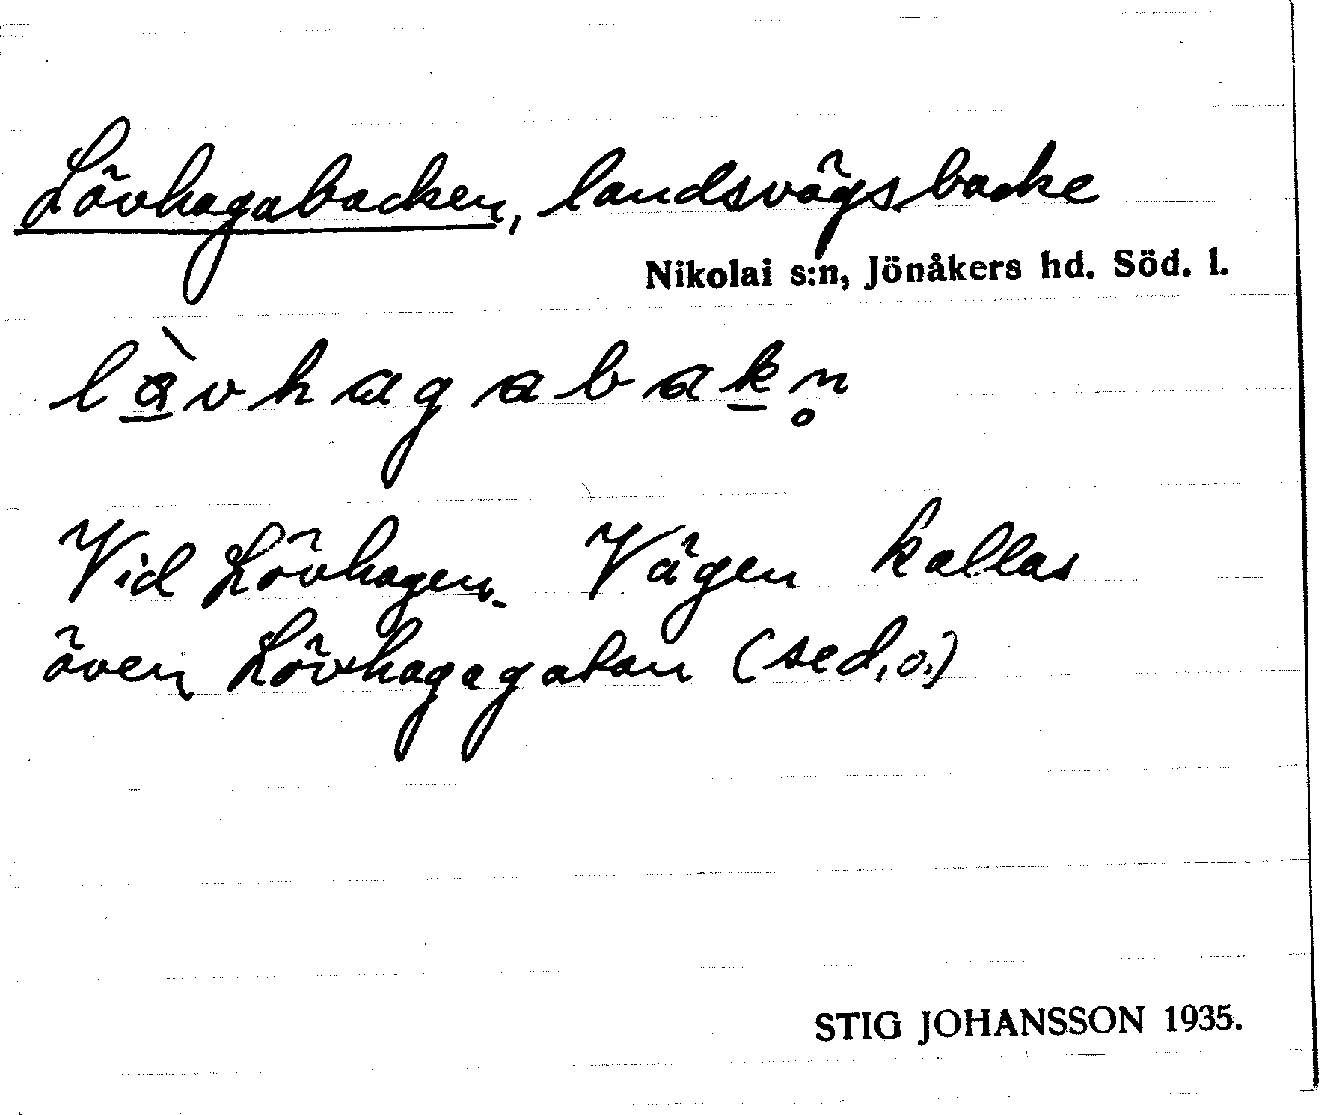 Lövhagabacken, landsvägsbacke
Nikolai s:n, Jönåkers hd. Söd. l.
lɵ̀vhagabakn̥
Vid Lövhagen. Vägen kallas
även Lövhagagatan (sed.o.)
STIG JOHANSSON 1935.